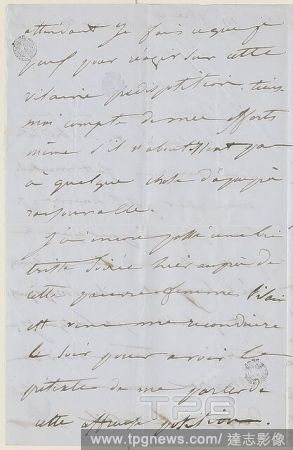 attendant je fais ce que je
peux pour réagir sur cette
vilaine prédisposition. tiens
moi compte de mes efforts
même s'il n'aboutissent pas
à quelque chose d'à peu près
raisonnable.
J'ai encore passé une bien
triste soirée hier auprès de
cette pauvre femme.
est venu me reconduire
le soir pour avoir le
prétexte de me parler de
cette affreuse position.
TPG
www.tpgnews.com / 達志影像